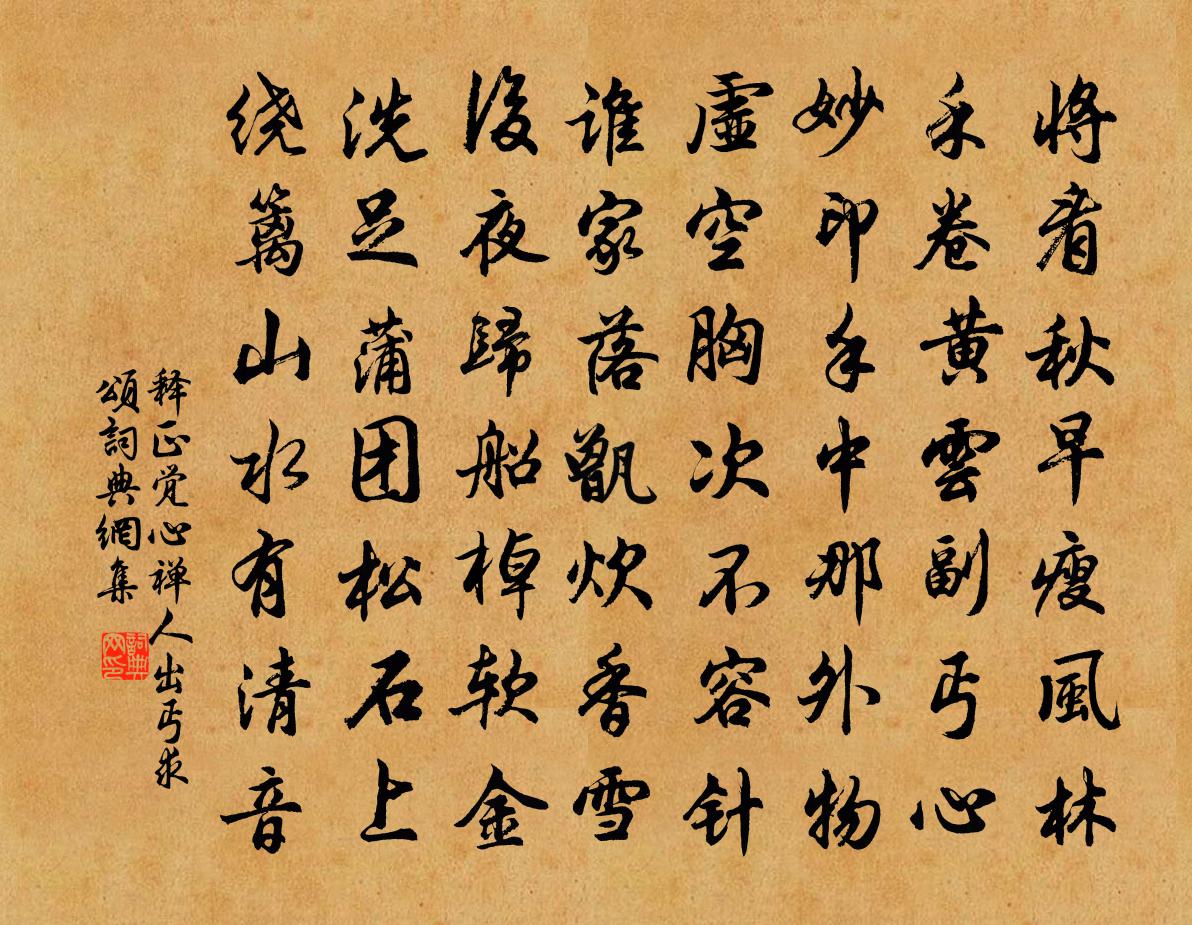 將看秋早瘦風林
禾卷黃雲副丐心
妙印手中那外物
虛空胸次不容针
誰家落甑炊香雪
後夜歸船棹软金
洗足蒲团松石上
绕篱山水有清音
释正觉心禅人出丐求
頌詞典網集
詞典
网印